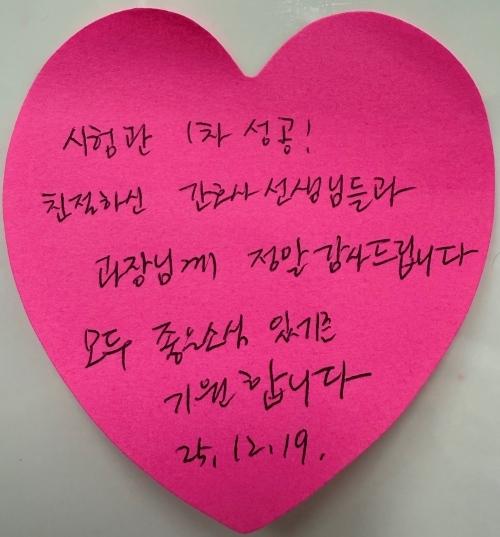 시험관 1차 성공!
친절하신 간호사 선생님들과
과장님께 정말 감사드립니다
모두 좋은소식 있기를
기원합니다
25.12.19.